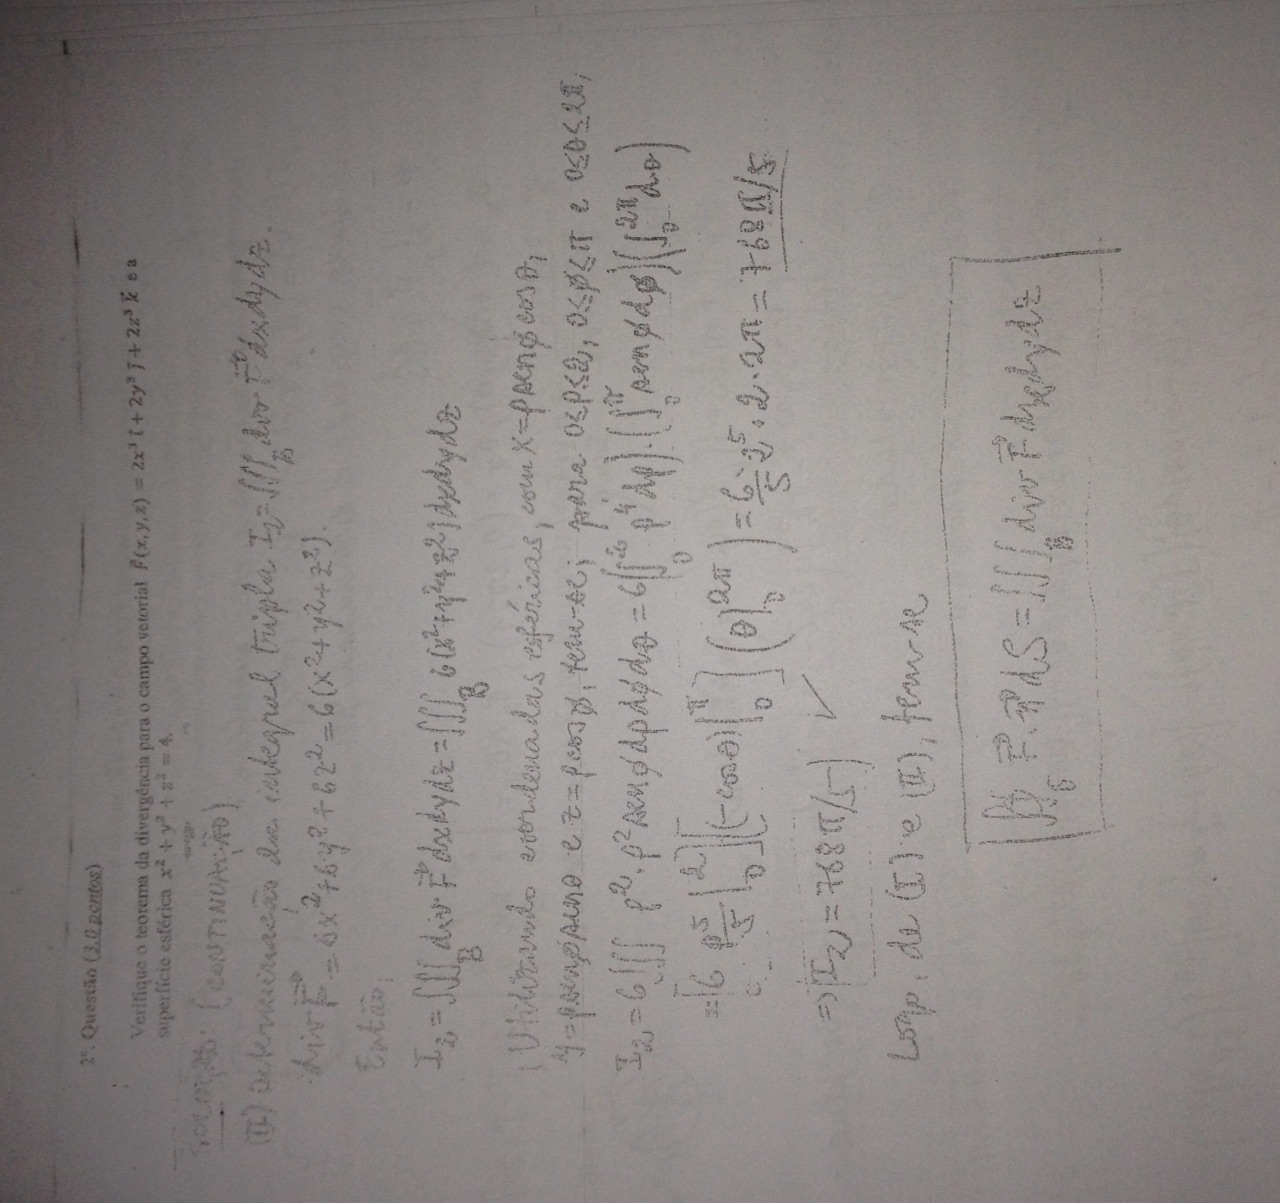 2ª. Questão (3.0 pontos)
Verifique o teorema da divergência para o campo vetorial F⃗(x, y, z) = 2x³ i⃗ + 2y³ j⃗ + 2z³ k⃗ e a
superfície esférica x² + y² + z² = 4.
Solução: (CONTINUAÇÃO)
(II) Determinação da integral tripla I₂ = ∭_B div F⃗ dxdydz.
div F⃗ = 6x² + 6y² + 6z² = 6(x² + y² + z²).
Então,
I₂ = ∭_B div F⃗ dxdydz = ∭_B 6(x² + y² + z²) dxdydz
Utilizando coordenadas esféricas, com x = ρ sen φ cos θ,
y = ρ sen φ sen θ e z = ρ cos φ, tem-se; para 0 ≤ ρ ≤ 2, 0 ≤ φ ≤ π e 0 ≤ θ ≤ 2π,
I₂ = 6∭ ρ² · ρ² sen φ dρ dφ dθ = 6(∫₀² ρ⁴ dρ) · (∫₀^π sen φ dφ)(∫₀^2π dθ)
= [6 ρ⁵/5 |₀²][(-cos θ)|₀^π] (θ|₀^2π) = 6/5 · 2⁵ · 2 · 2π = 768π/5
⇒ I₂ = 768π/5 ✓
Logo, de (I) e (II), tem-se
∯_S F⃗ · n⃗ dS = ∭_B div F⃗ dxdydz